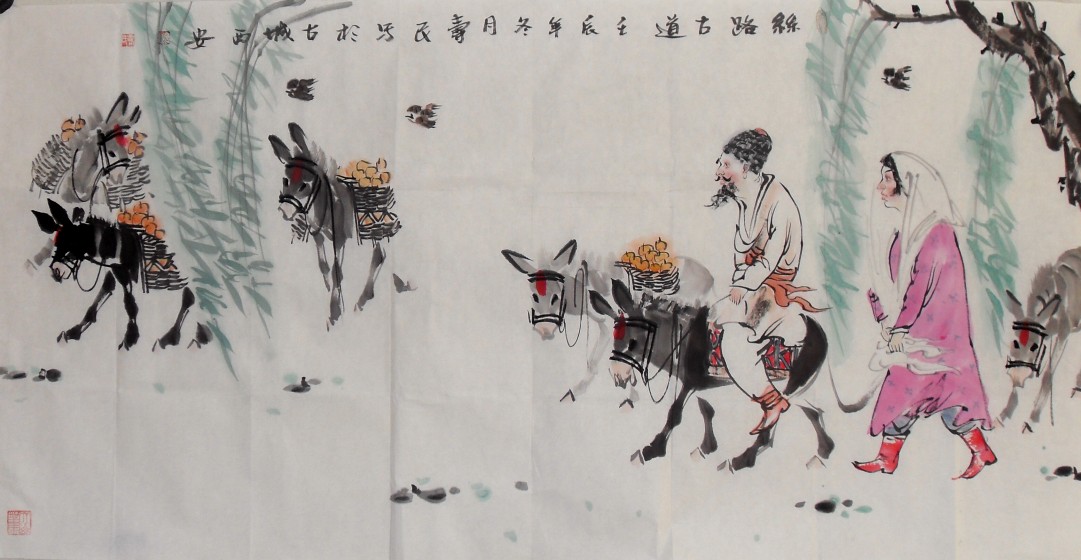 絲路古道壬辰年冬月壽民写於古城西安